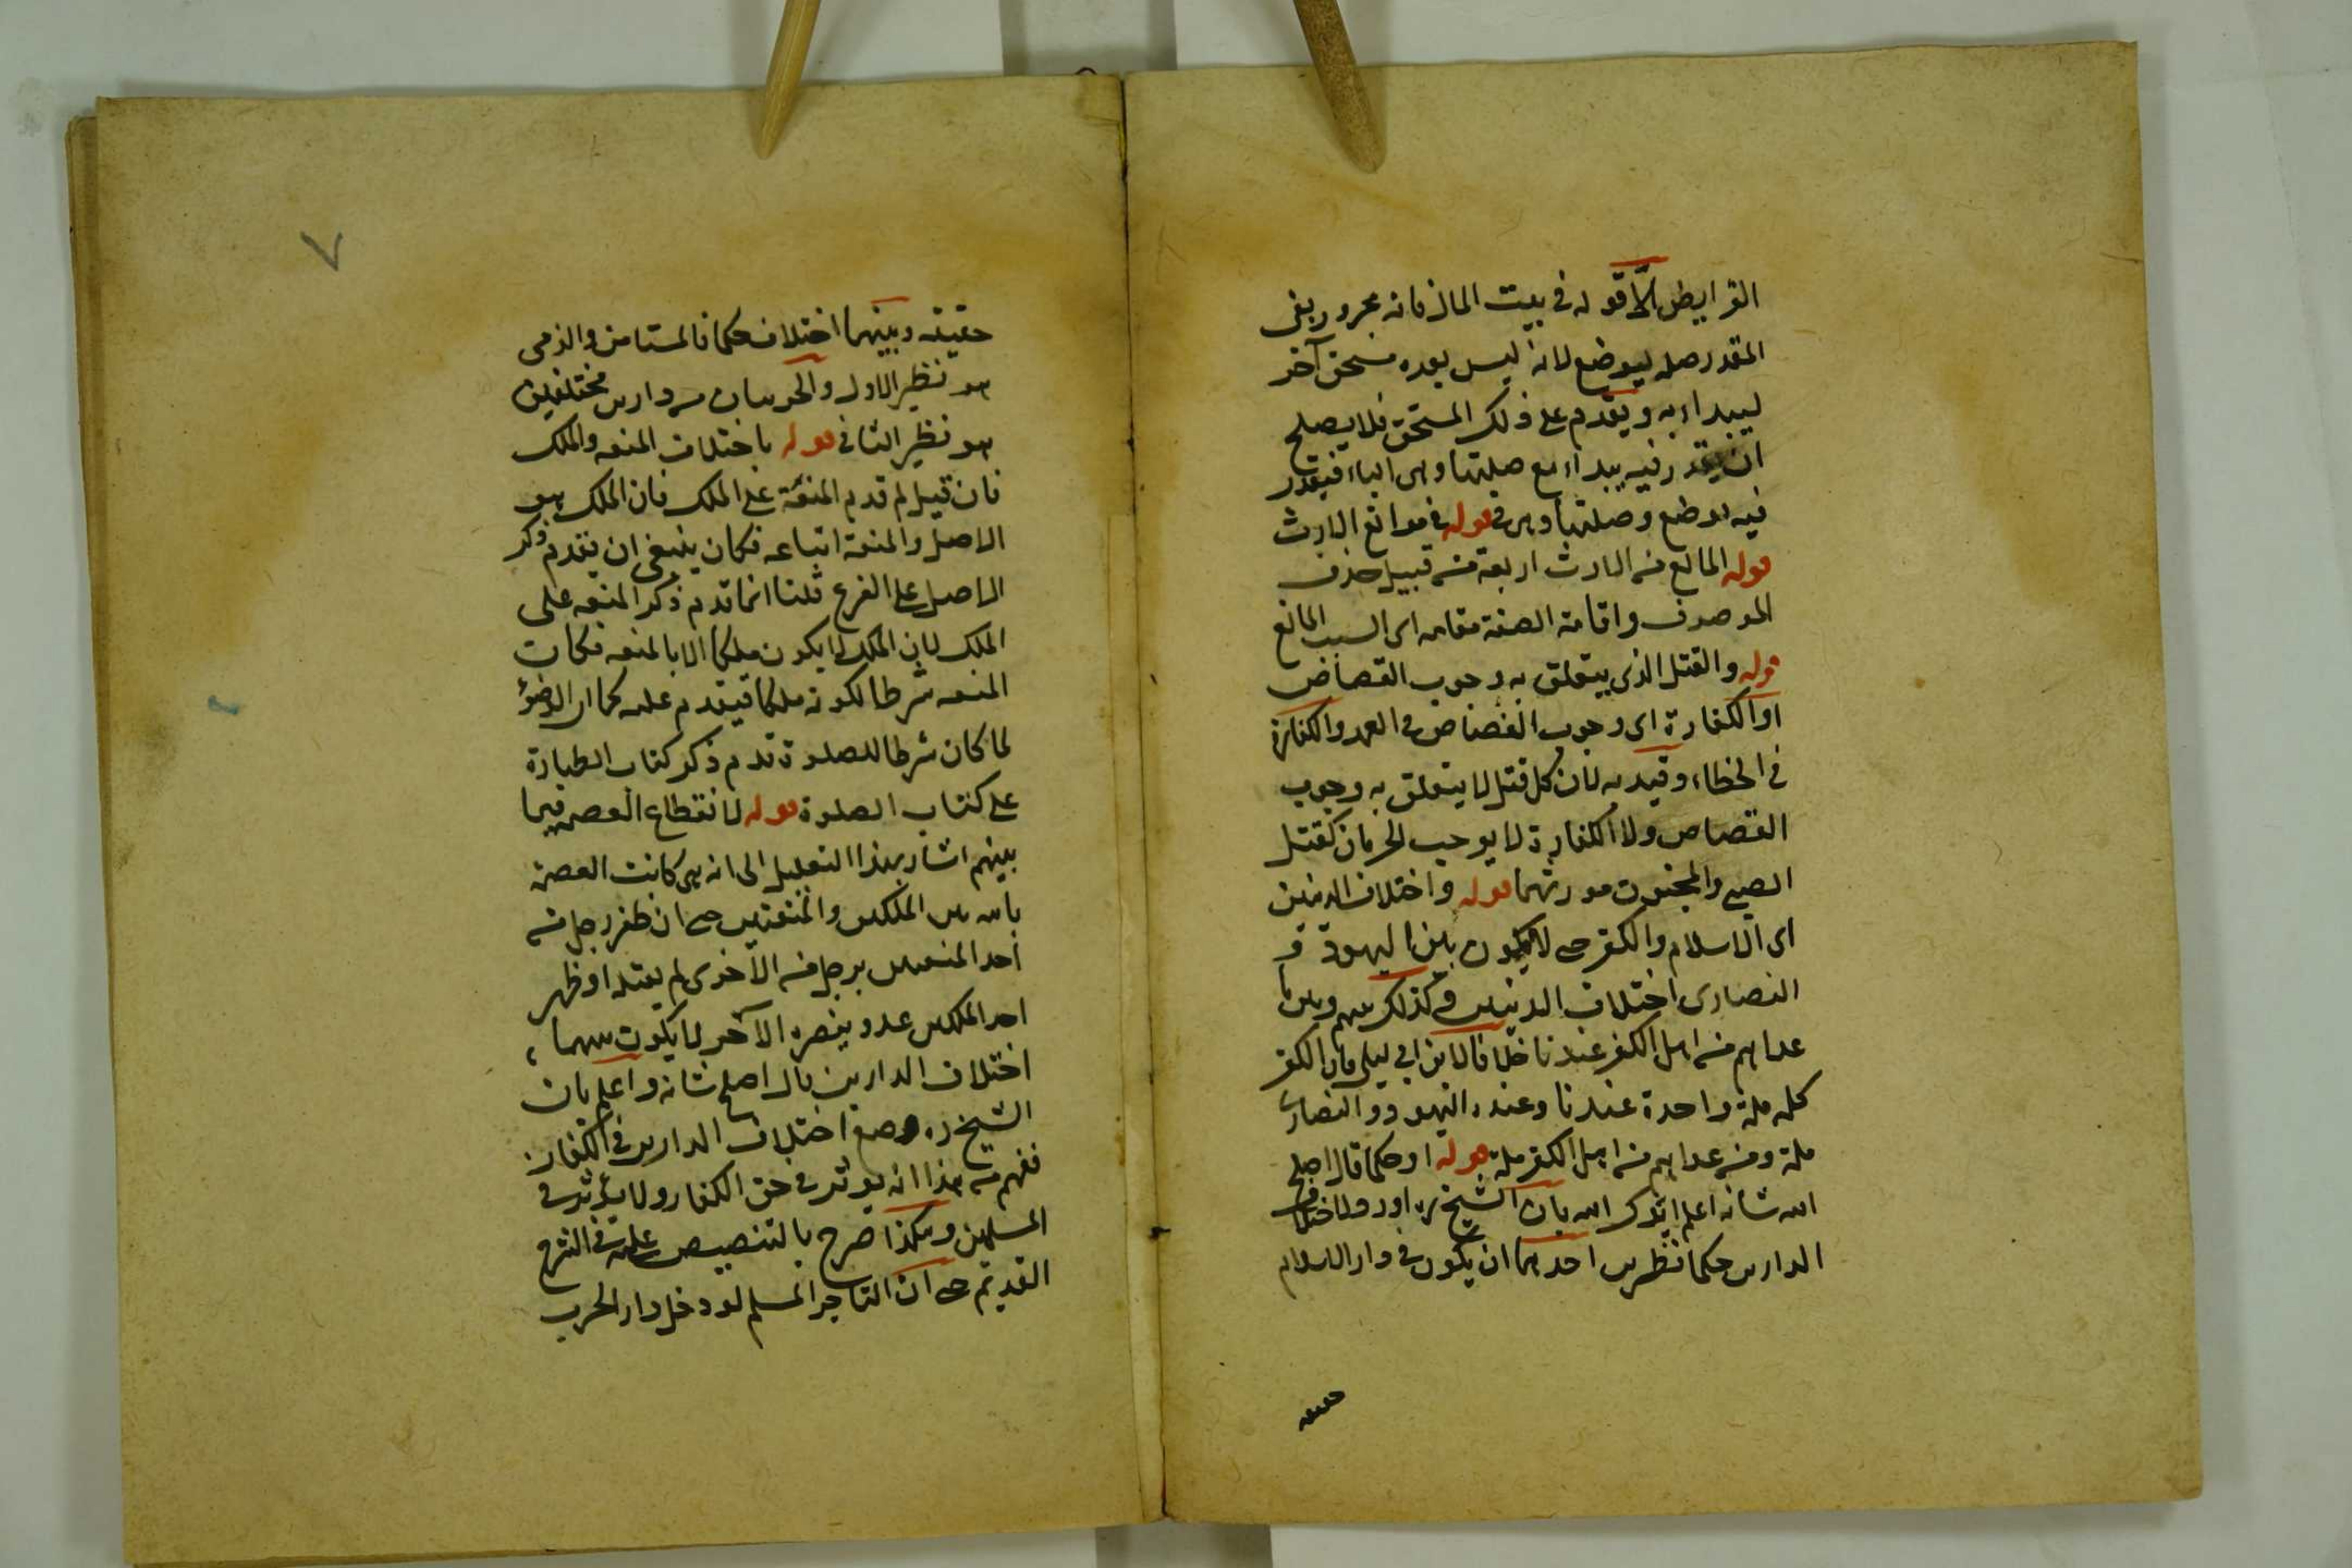 الفرايض الا قوله في بيت المال فانه مجرور بفى
المقدر صله ليوضع لانه ليس بعده مستحق آخر
ليبداء به ويقدم على ذلك المستحق فلا يصلح
ان يقدر فيه يبداء مع صلتها وهى الباء فيقدر
فيه يوضع وصلتها وهى فى قوله فى موانع الارث
قوله المانع من الارث اربعة من قبيل حذف
الموصوف واقامة الصفة مقامه اى السبب المانع
قوله والقتل الذى يتعلق به وجوب القصاص
او الكفارة اى وجوب القصاص فى العمد والكفارة
فى الخطاء وقيد به لان كل قتل لا يتعلق به وجوب
القصاص ولا الكفارة لا يوجب الحرمان كقتل
الصبى والمجنون مورثهما قوله واختلاف الدينين
اى الاسلام والكفر حى لا يكون بين اليهود و
النصارى اختلاف الدينين وكذلك بينهم وبين ما
عداهم من اهل الكفر عندنا خلافا لابن ابى ليلى فان الكفر
كله ملة واحدة عندنا وعنده اليهود والنصارى
ملة ومن عداهم من اهل الكفر ملة قوله او حكما قال اصلح
الله شانه اعلم ايدك الله بان الشيخ ره اورد لاختلاف
الدارين حكما نظيرين احدهما ان يكون فى دار الاسلام
حقيقه
٧
حقيقه وبينهما اختلاف حكما فالمستامن والذمى
هو نظير الاول والحربيان من دارين مختلفين
هو نظير الثانى قوله باختلاف المنعه والملك
فان قيل لم قدم المنعة على الملك فان الملك هو
الاصل والمنعة اتباعه فكان ينبغى ان يقدم ذكر
الاصل على الفرع قلنا انما قدم ذكر المنعه على
الملك لان الملك لا يكون ملكا الا بالمنعه فكانت
المنعه شرطا لكونه ملكا فيقدم عليه كما ان الوضوء
لما كان شرطا للصلوة قدم ذكر كتاب الطهارة
على كتاب الصلوة قوله لانقطاع العصمة فيما
بينهم اشار بهذا التعليل الى انه متى كانت العصمة
بين الملكين والمنعتين حى ان ظفر رجل من
احد المنعتين برجل من الاخرى لم يقتله او ظهر
احد الملكين عدو ينصره الآخر لا يكون بينهما
اختلاف الدارين قال اصلح شانه واعلم بان
الشيخ ره وضع اختلاف الدارين فى الكفار
ففهم من هذا انه يوثر فى حق الكفار ولا يؤثر فى
المسلمين وهكذا صرح بالتنصيص عليه فى الشرح
القديم حى ان التاجر المسلم لو دخل دار الحرب